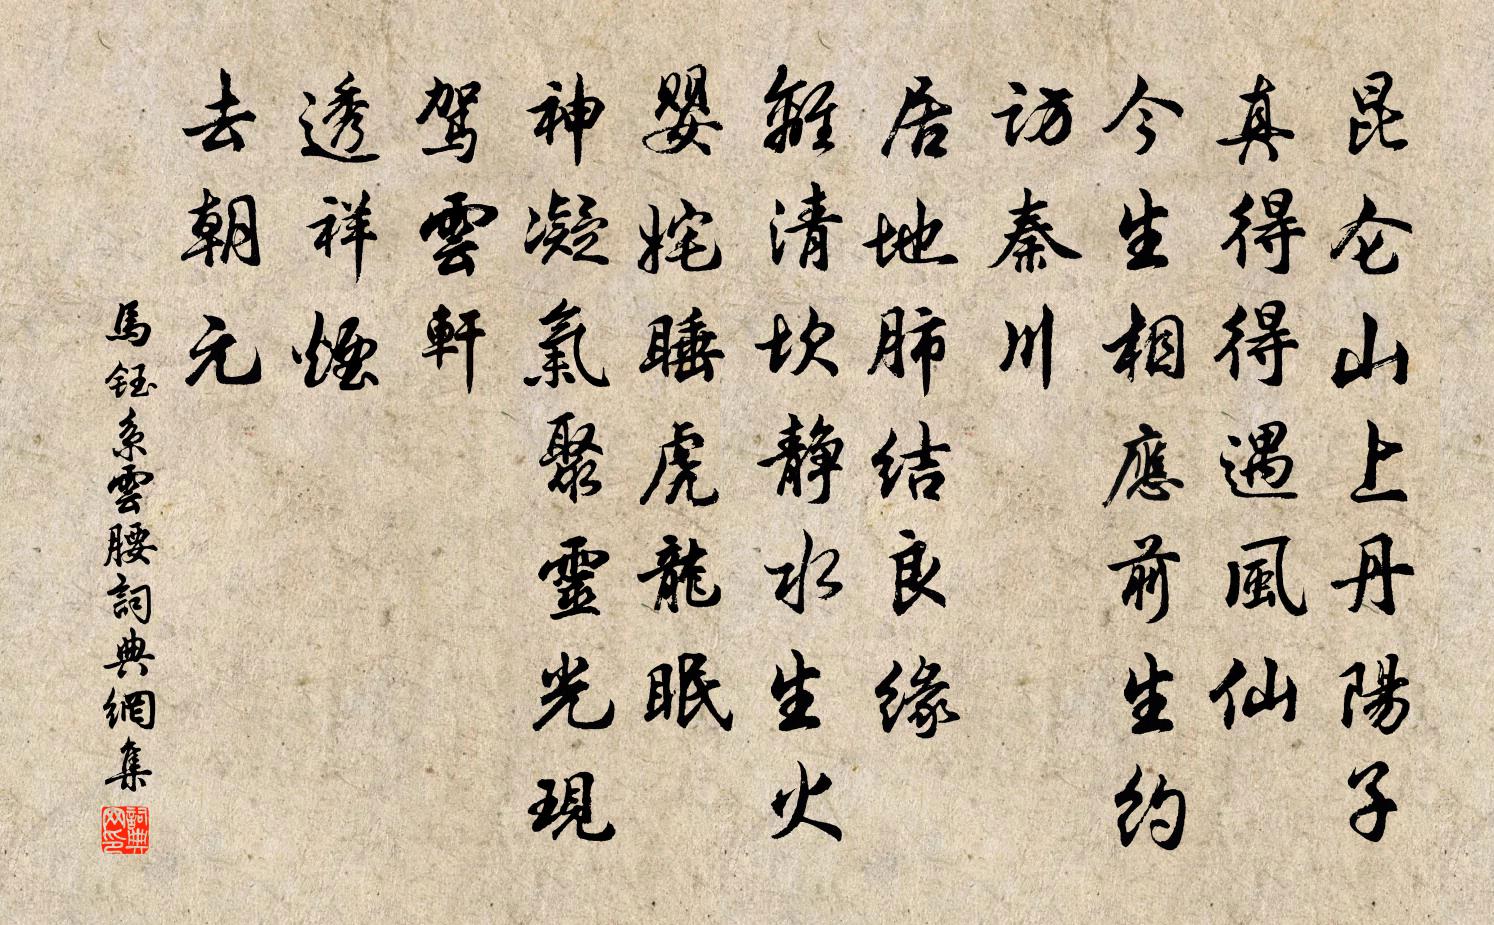 昆仑山上丹陽子
真得得遇風仙
今生相應前生約
訪秦川
居地肺結良緣
離清坎静水生火
嬰姹睡虎龍眠
神凝氣聚靈光現
駕雲軒
透祥煙
去朝元
馬鈺系雲腰詞典網集
詞典网印